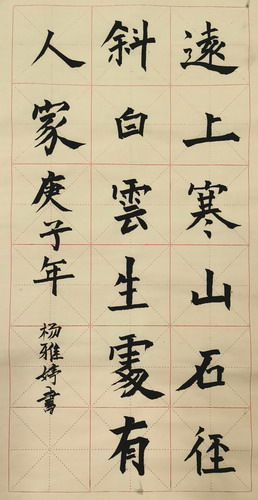 遠上寒山石徑
斜白雲生處有
人家庚子年
杨雅婷書